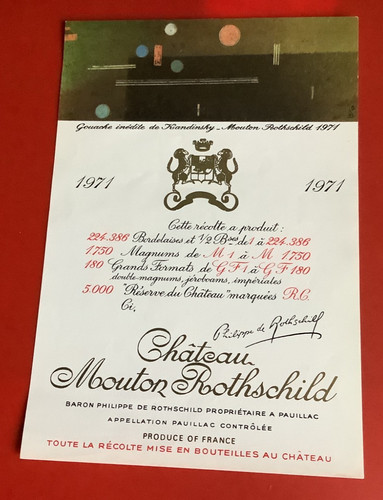 Gouache inédite de Kandinsky - Mouton Rothschild 1971
1971 1971
Cette récolte a produit:
224.386 Bordelaises et 1/2 Bses de 1 à 224.386
1750 Magnums de M 1 à M 1750
180 Grands Formats de G F 1 à G F 180
double-magnums, jéroboams, impériales
5.000 "Réserve du Château" marquées R.C.
Ci,
Philippe de Rothschild
Château
Mouton Rothschild
BARON PHILIPPE DE ROTHSCHILD PROPRIÉTAIRE A PAUILLAC
APPELLATION PAUILLAC CONTRÔLÉE
PRODUCE OF FRANCE
TOUTE LA RÉCOLTE MISE EN BOUTEILLES AU CHÂTEAU